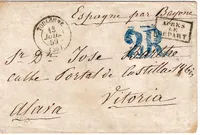 Espagne par Bayonne
TOULOUSE
13
JUIL.
59
APRÈS
LE
DÉPART
Sr Dn Jose
calle Portal de Castilla
Vitoria
Alava